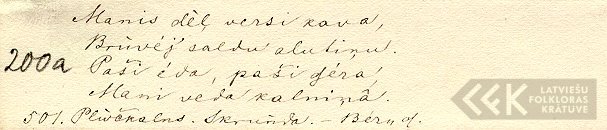 Manis dēļ versi kava,
Brūvēj saldu alutiņu.
200a
Paši ēda, paši ģēra,
Mani veda kalniņā.
501. Plivčkalns. Skrunda. – Bērud.
LATVIEŠU
FOLKLORAS
KRĀTUVE